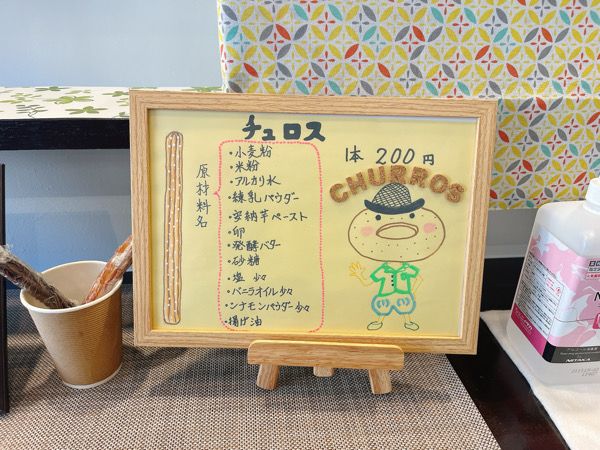 チュロス
1本 200円
CHURROS
原材料名
・小麦粉
・米粉
・アルカリ水
・練乳パウダー
・安納芋ペースト
・卵
・発酵バター
・砂糖
・塩 少々
・バニラオイル少々
・シナモンパウダー少々
・揚げ油
NIITAKA